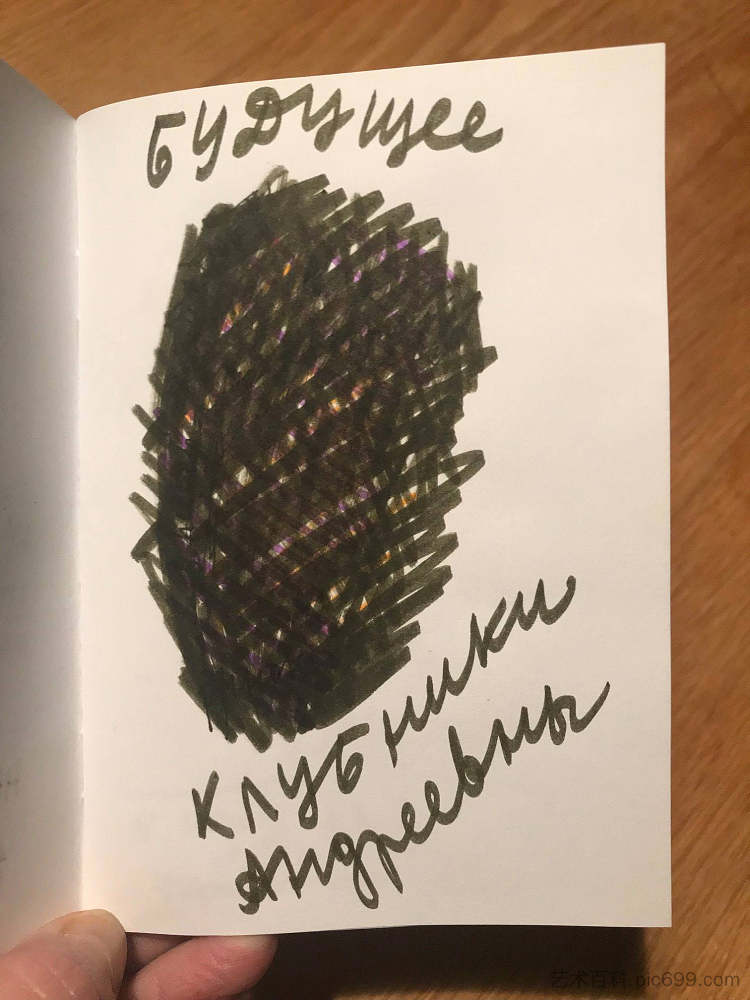 БУДУщее
КЛУБНИКИ
АНдреевны
艺术百科 pic699.com